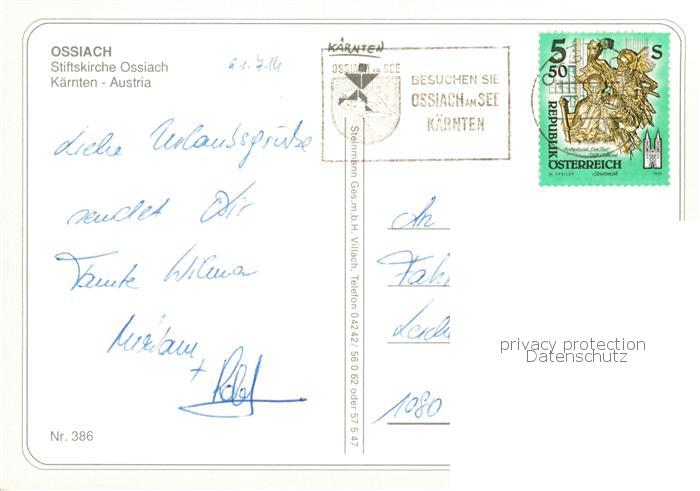 OSSIACH
Stiftskirche Ossiach
Kärnten - Austria
KÄRNTEN
OSSIACH AM SEE
BESUCHEN SIE
OSSIACH AM SEE
KÄRNTEN
5 50 S
REPUBLIK
ÖSTERREICH
W. PFEILER
Liebe Urlaubsgrüße
sendet Dir
Tante Wilma
Miriam
+
Steinmann Ges.m.b.H. Villach, Telefon 04242/ 56 0 62 oder 57 5 47
An
Fah
1080
privacy protection
Datenschutz
Nr. 386